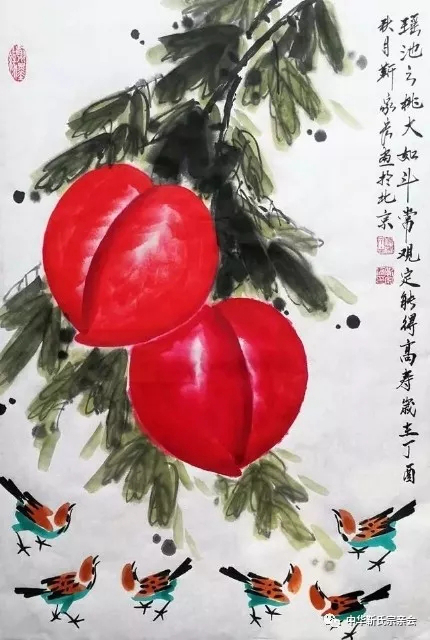 瑶池之桃大如斗常观定能得高寿岁在丁酉
秋月靳家画於北京
中华靳氏宗亲会